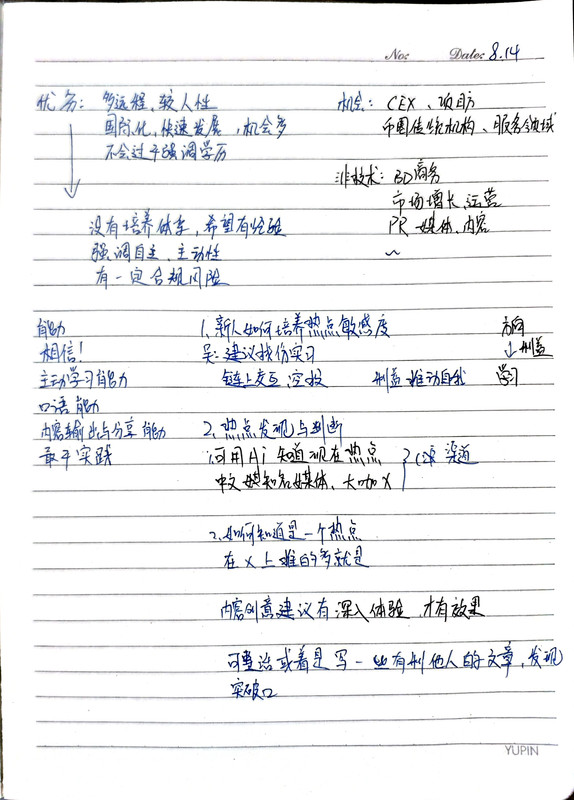 No:
Date: 8.14
优势: 多远程, 较人性
国际化, 快速发展, 机会多
不会过于强调学历
机会: CEX、项目方
币圈传统机构、服务领域
非技术: BD商务
市场增长、运营
PR 媒体、内容
~
没有培养体系, 希望有经验
强调自主、主动性
有一定合规风险
能力
相信!
主动学习能力
口语能力
内容输出与分享能力
敢于实践
1. 新人如何培养热点敏感度
吴: 建议找份实习
链上交互, 空投 利益推动自我
方向
↓利益
学习
2. 热点发现与判断
1. 可用Ai 知道现在热点
中文媒知名媒体、大咖X
渠道
2. 如何知道是一个热点
在X上推的多就是
内容创意建议有深入体验, 才有效果
可整治或着是写一些有利他人的文章, 发现
突破口
YUPIN